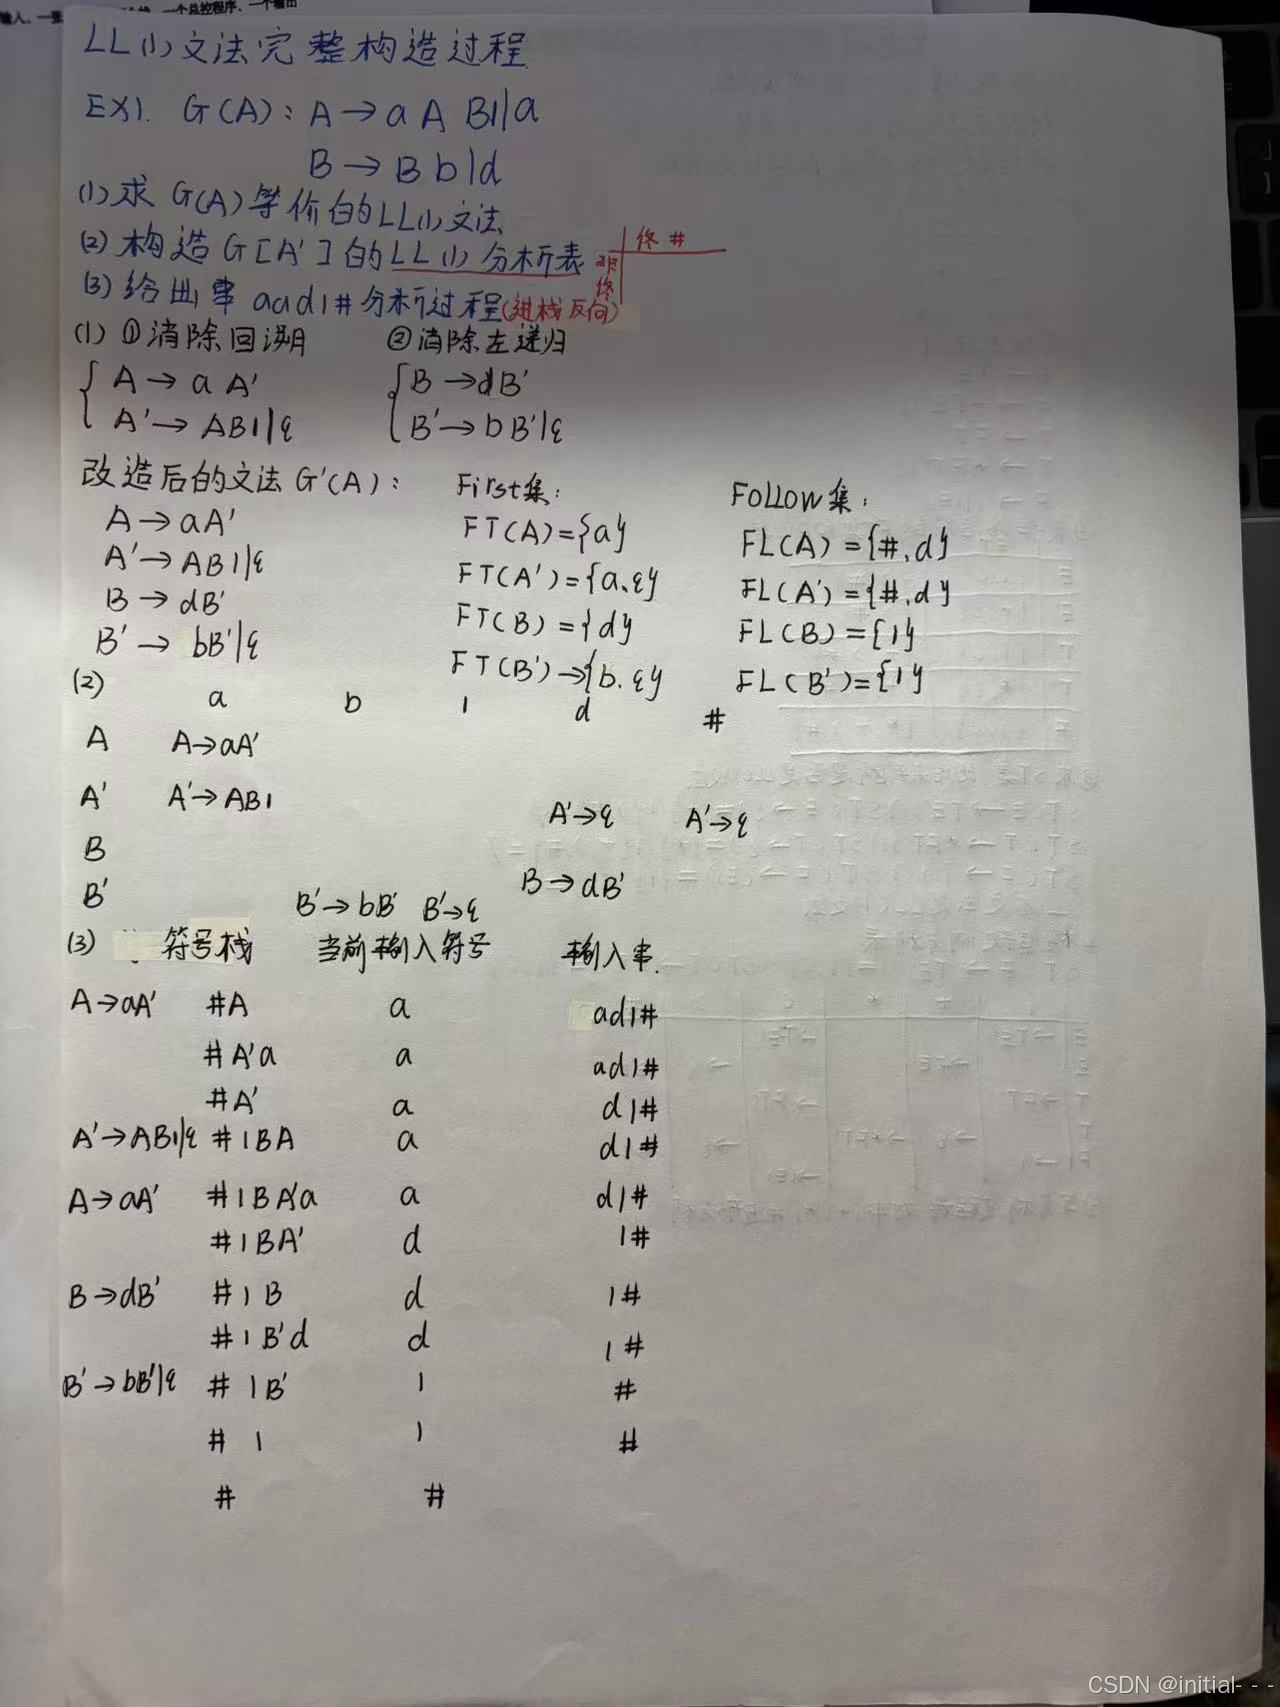 输入、一张 一个总控程序、一个输出
LL(1)文法完整构造过程
EX1. G(A): A→aAB1|a
B→Bb|d
(1)求G(A)等价的LL(1)文法
(2)构造G[A']的LL(1)分析表 非终 终#
(3)给出串aad1#分析过程(进栈反向)
(1)①消除回溯 ②消除左递归
A→aA' B→dB'
A'→AB1|ε B'→bB'|ε
改造后的文法G'(A): First集: Follow集:
A→aA' FT(A)={a} FL(A)={#,d}
A'→AB1|ε FT(A')={a、ε} FL(A')={#,d}
B→dB' FT(B)={d} FL(B)={1}
B'→bB'|ε FT(B')→{b.ε} FL(B')={1}
(2) a b 1 d #
A A→aA'
A' A'→AB1 A'→ε A'→ε
B B→dB'
B' B'→bB' B'→ε
(3) 符号栈 当前输入符号 输入串.
A→aA' #A a ad1#
#A'a a ad1#
#A' a d1#
A'→AB1|ε #1BA a d1#
A→aA' #1BA'a a d1#
#1BA' d 1#
B→dB' #1B d 1#
#1B'd d 1#
B'→bB'|ε #1B' 1 #
#1 1 #
# #
CSDN @initial- - -